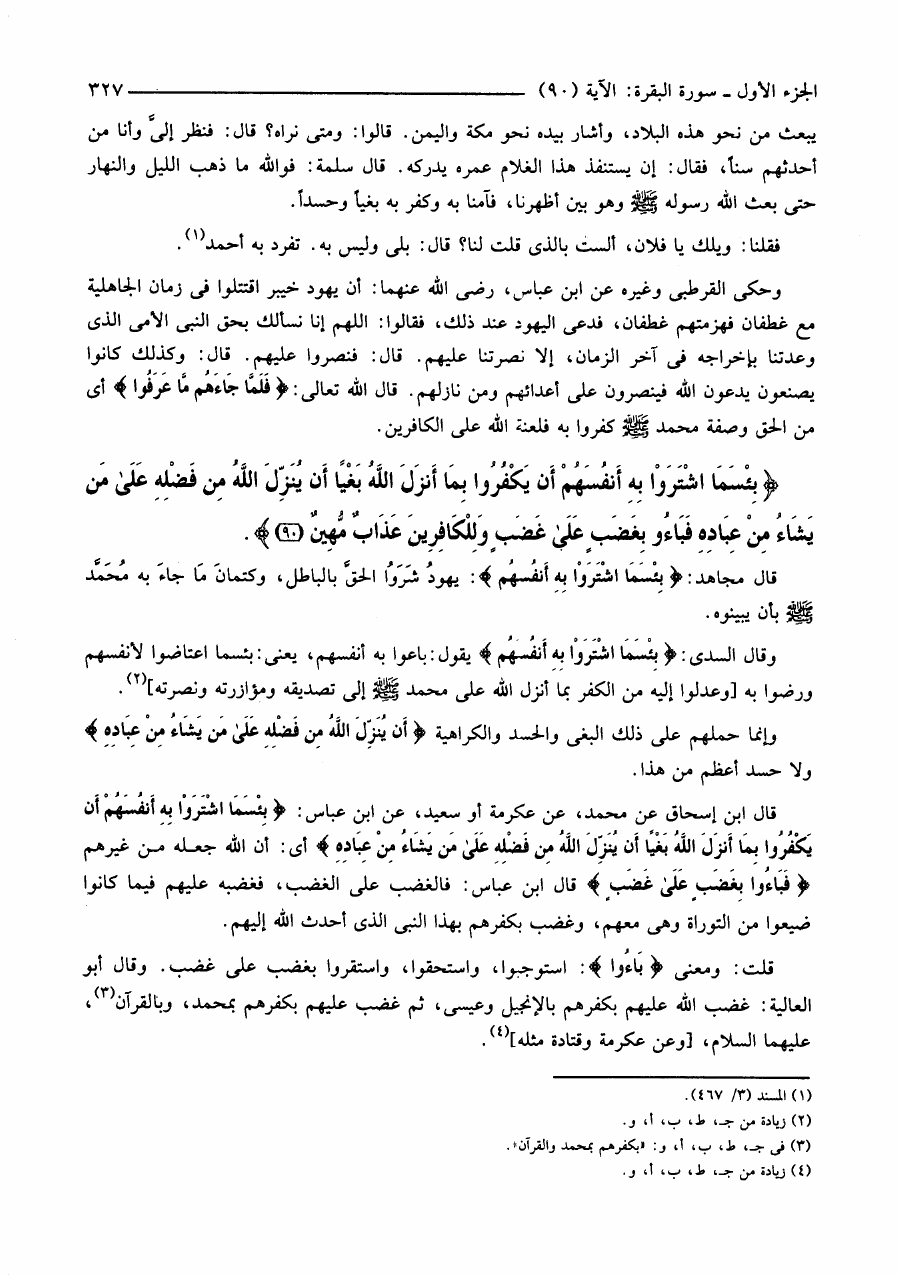 الجزء الأول ـ سورة البقرة: الآية (٩٠) ٣٢٧
يبعث من نحو هذه البلاد، وأشار بيده نحو مكة واليمن. قالوا: ومتى نراه؟ قال: فنظر إلىَّ وأنا من
أحدثهم سناً، فقال: إن يستنفذ هذا الغلام عمره يدركه. قال سلمة: فوالله ما ذهب الليل والنهار
حتى بعث الله رسوله ﷺ وهو بين أظهرنا، فآمنا به وكفر به بغياً وحسداً.
فقلنا: ويلك يا فلان، ألست بالذى قلت لنا؟ قال: بلى وليس به. تفرد به أحمد(١).
وحكى القرطبى وغيره عن ابن عباس، رضى الله عنهما: أن يهود خيبر اقتتلوا فى زمان الجاهلية
مع غطفان فهزمتهم غطفان، فدعى اليهود عند ذلك، فقالوا: اللهم إنا نسألك بحق النبى الأمى الذى
وعدتنا بإخراجه فى آخر الزمان، إلا نصرتنا عليهم. قال: فنصروا عليهم. قال: وكذلك كانوا
يصنعون يدعون الله فينصرون على أعدائهم ومن نازلهم. قال الله تعالى: ﴿ فَلَمَّا جَاءَهُم مَّا عَرَفُوا ﴾ أى
من الحق وصفة محمد ﷺ كفروا به فلعنة الله على الكافرين.
﴿ بِئْسَمَا اشْتَرَوْا بِهِ أَنفُسَهُمْ أَن يَكْفُرُوا بِمَا أَنزَلَ اللَّهُ بَغْيًا أَن يُنَزِّلَ اللَّهُ مِن فَضْلِهِ عَلَىٰ مَن
يَشَاءُ مِنْ عِبَادِهِ فَبَاءُو بِغَضَبٍ عَلَىٰ غَضَبٍ وَلِلْكَافِرِينَ عَذَابٌ مُّهِينٌ (٩٠) ﴾.
قال مجاهد: ﴿ بِئْسَمَا اشْتَرَوْا بِهِ أَنفُسَهُم ﴾: يهودُ شَرَوُا الحقَّ بالباطل، وكتمانَ مَا جاءَ به مُحَمَّد
ﷺ بأن يبينوه.
وقال السدى: ﴿ بِئْسَمَا اشْتَرَوْا بِهِ أَنفُسَهُم ﴾ يقول: باعوا به أنفسهم، يعنى: بئسما اعتاضوا لأنفسهم
ورضوا به [وعدلوا إليه من الكفر بما أنزل الله على محمد ﷺ إلى تصديقه ومؤازرته ونصرته](٢).
وإنما حملهم على ذلك البغى والحسد والكراهية ﴿ أَن يُنَزِّلَ اللَّهُ مِن فَضْلِهِ عَلَىٰ مَن يَشَاءُ مِنْ عِبَادِهِ ﴾
ولا حسد أعظم من هذا.
قال ابن إسحاق عن محمد، عن عكرمة أو سعيد، عن ابن عباس: ﴿ بِئْسَمَا اشْتَرَوْا بِهِ أَنفُسَهُمْ أَن
يَكْفُرُوا بِمَا أَنزَلَ اللَّهُ بَغْيًا أَن يُنَزِّلَ اللَّهُ مِن فَضْلِهِ عَلَىٰ مَن يَشَاءُ مِنْ عِبَادِهِ ﴾ أى: أن الله جعله من غيرهم
﴿ فَبَاءُوا بِغَضَبٍ عَلَىٰ غَضَبٍ ﴾ قال ابن عباس: فالغضب على الغضب، فغضبه عليهم فيما كانوا
ضيعوا من التوراة وهى معهم، وغضب بكفرهم بهذا النبى الذى أحدث الله إليهم.
قلت: ومعنى ﴿ بَاءُوا ﴾: استوجبوا، واستحقوا، واستقروا بغضب على غضب. وقال أبو
العالية: غضب الله عليهم بكفرهم بالإنجيل وعيسى، ثم غضب عليهم بكفرهم بمحمد، وبالقرآن(٣)،
عليهما السلام، [وعن عكرمة وقتادة مثله](٤).
(١) المسند (٣/ ٤٦٧).
(٢) زيادة من جـ، ط، ب، أ، و.
(٣) فى جـ، ط، ب، أ، و: «بكفرهم بمحمد والقرآن».
(٤) زيادة من جـ، ط، ب، أ، و.